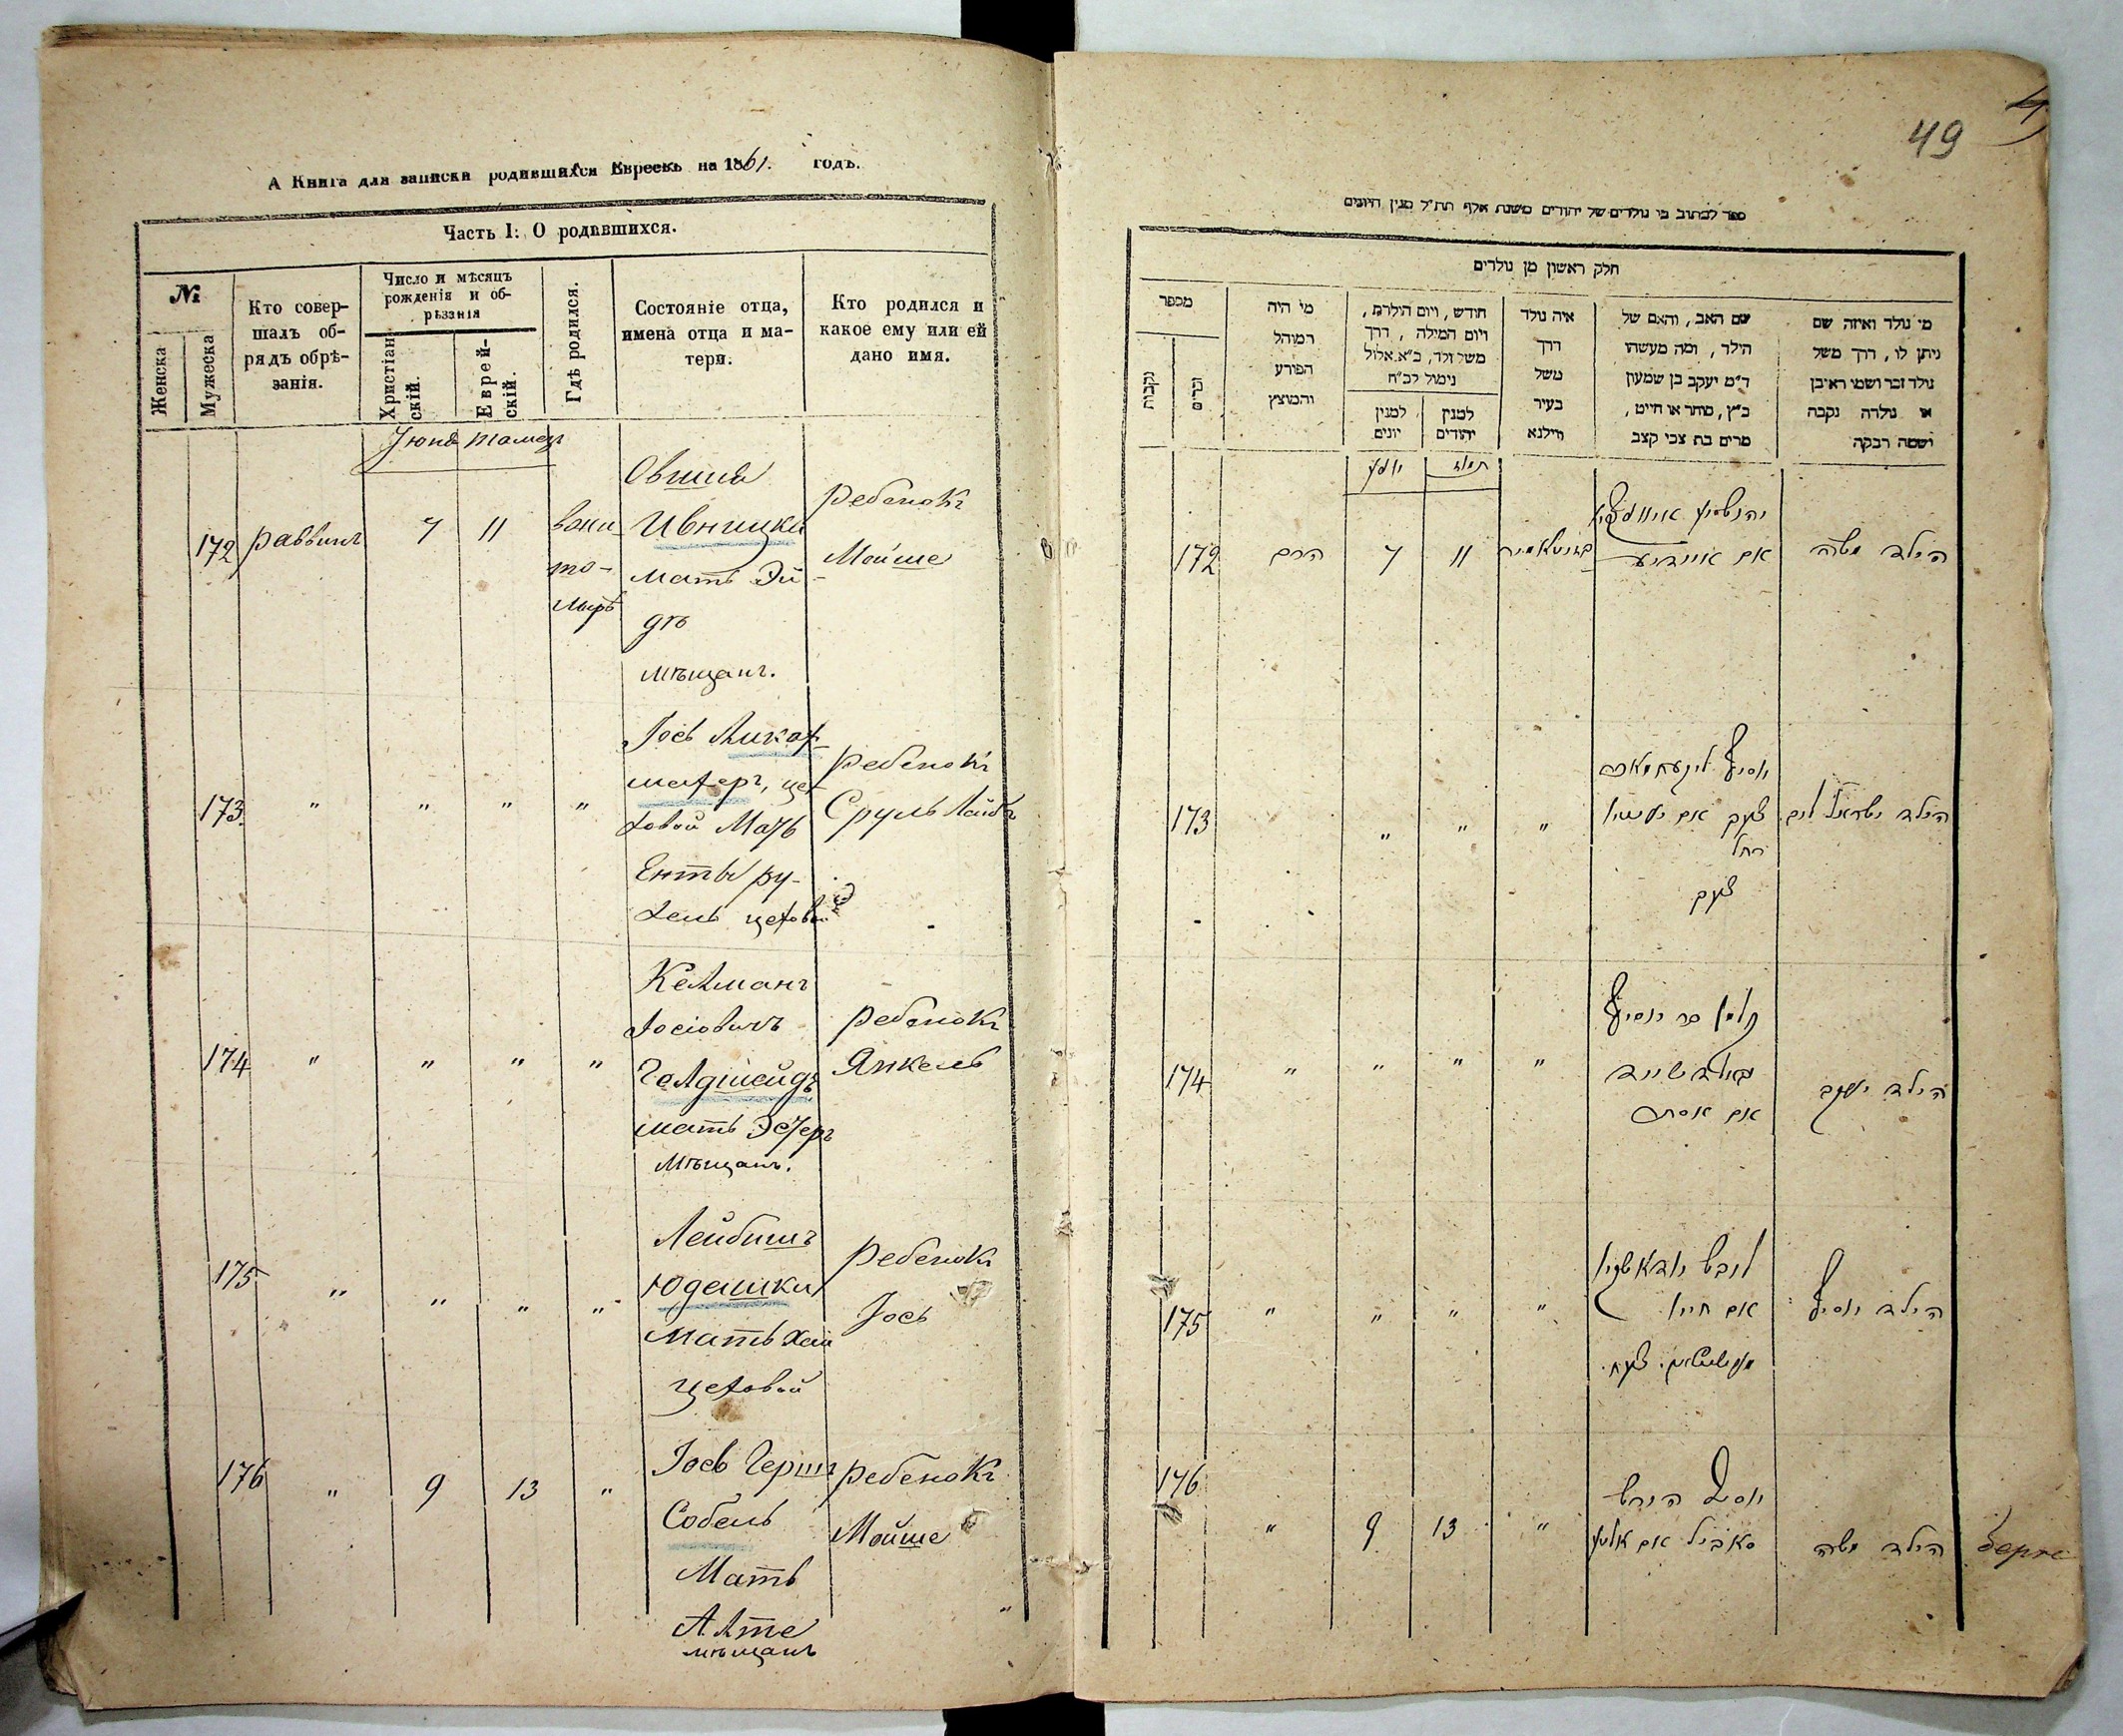 А Книга для записки родившихся Евреевъ на 1861. годъ.
Часть I: О родившихся.
№
Женска
Мужеска
Кто совер-
шалъ об-
рядъ обрѣ-
занія.
Число и мѣсяцъ
рожденія и об-
рѣзанія
Христіан-
скій.
Еврей-
скій.
Гдѣ родился.
Состояніе отца,
имена отца и ма-
тери.
Кто родился и
какое ему или ей
дано имя.
172
раввинъ
7
11
Овшия
Ивницки
мать Эй-
дъ
мѣщанъ.
ребенокъ
Мойше
173.
"
"
"
"
Іось Ликахт-
цеховой
ребенокъ
Сруль Лайбъ
174
"
"
"
"
Келманъ
Іосіовичъ
Гелдшейдъ
мать Эстеръ
мѣщанъ.
ребенокъ
Янкель
175
"
"
"
"
Лейбишъ
Юдашки
Мать Хаи
цеховой
ребенокъ
Іось
176
"
9
13
"
Іось Гершъ
Собель
Мать
Алте
мѣщанъ
ребенокъ
Мойше
49
ספר לכתוב בו נולדים של יהודים משנת אלף תת״ל מנין היונים
חלק ראשון מן נולדים
מספר
נקבות
זכרים
מי היה
המוהל
הפורע
והמוצץ
חודש, ויום הולדת,
ויום המילה, דרך
משל נולד, כ״א אלול
נימול לכ״ח
למנין
יונים
למנין
יהודים
איה נולד
דרך
משל
בעיר
ווילנא
שם האב, והאם של
הילד, ומה מעשהו
ד״מ יעקב בן שמעון
כ״ץ, סוחר או חייט,
מרים בת צבי קצב
מי נולד ואיזה שם
ניתן לו, דרך משל
נולד זכר ושמו ראובן
או נולדה נקבה
ושמה רבקה
172
הרב
7
11
הילד משה
173
"
"
"
הילד ישראל ליב
174
"
"
"
"
קלמן בר יוסיף
גאלדשייד
אם אסתר
הילד יעקב
175
"
"
"
"
אם חייא
הילד יוסיף
176
"
9
13
"
יוסף הירש
סאביל אם אלטע
הילד משה